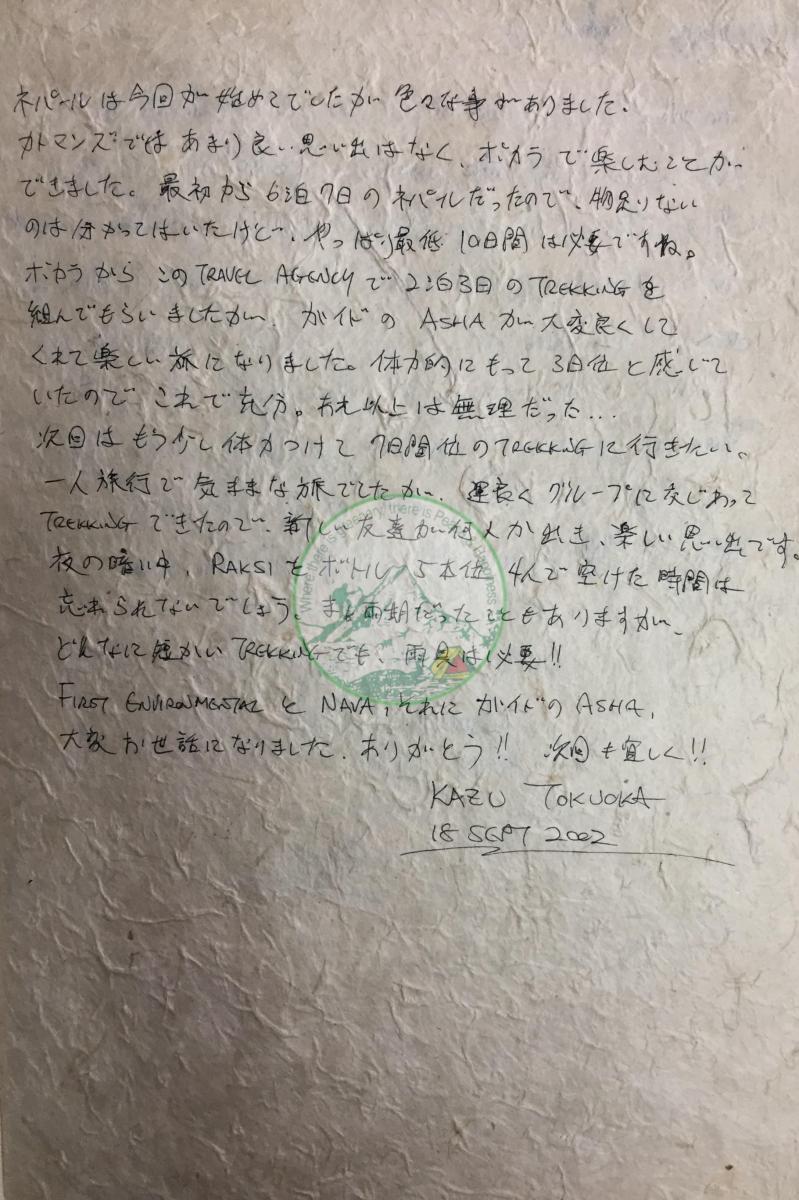 ネパールは今回が始めてでしたが色々な事がありました.
カトマンズではあまり良い思い出はなく、ポカラで楽しむことが
できました。最初から6泊7日のネパールだったので、物足りない
のは分かってはいたけど、やっぱり最低10日間は必要ですね。
ポカラからこのTRAVEL AGENCYで2泊3日のTREKKINGを
組んでもらいましたが、ガイドのASHAが大変良くして
くれて楽しい旅になりました。体力的にもって3日位と感じて
いたのでこれで充分。それ以上は無理だった...
次回はもう少し体力つけて7日間位のTREKKINGに行きたい。
一人旅行で気ままな旅でしたが、運良くグループに交じわって
TREKKINGできたので、新しい友達が何人か出来、楽しい思い出です。
夜の暗い中、RAKSIをボトル5本位4人で空けた時間は
忘れられないでしょう。まぁ雨期だったこともありますが、
どんなに短かいTREKKINGでも、雨具は必要!!
FIRST ENVIRONMENTALとNAVA,それにガイドのASHA,
大変お世話になりました.ありがとう!! 次回も宜しく!!
KAZU TOKUOKA
18 SEPT 2002
Where there is greenery there is Peace